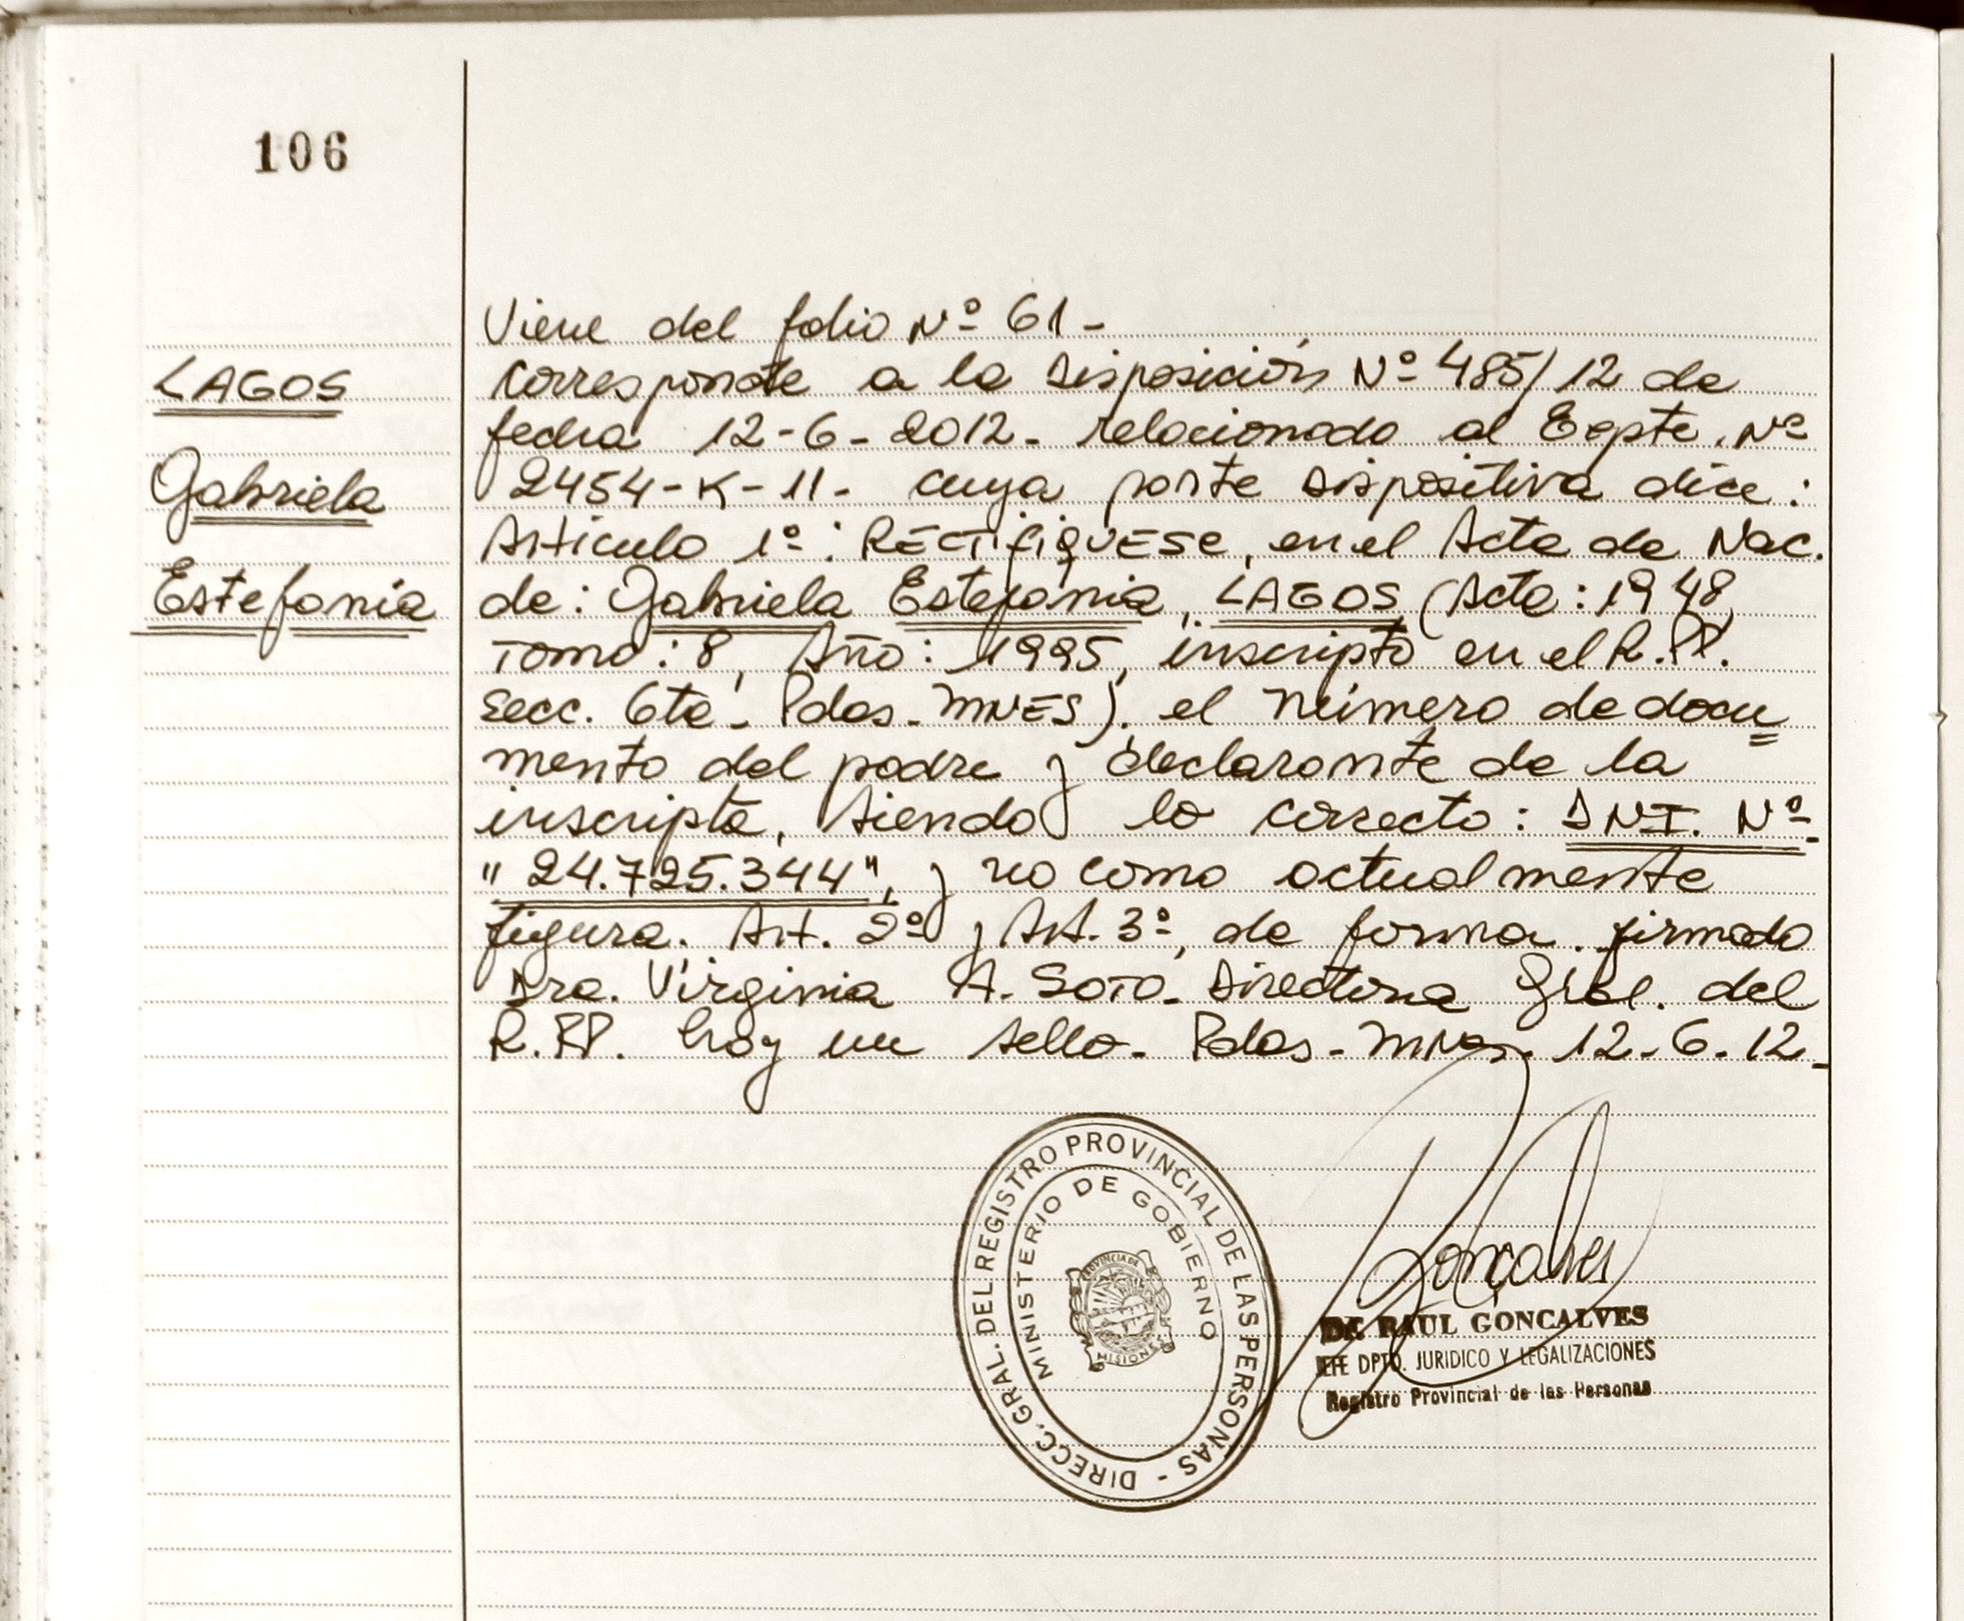 106
LAGOS
Gabriela
Estefania
Viene del folio Nº 61-
Corresponde a la disposición Nº 485/12 de
fecha 12-6-2012- relacionado al Expte. Nº
2454-K-11- cuya parte dispositiva dice:
Artículo 1º: RECTIFIQUESE, en el Acta de Nac.
de: Gabriela Estefania, LAGOS (Acta: 1948,
Tomo: 8, Año: 1995, inscripto en el R.PP.
Secc. 6ta- Pdas-MNES). el número de docu
mento del padre y declarante de la
inscripta, siendo lo correcto: DNI. Nº-
"24.725.344", y no como actualmente
figura. Art. 2º y Art. 3º, de forma. firmado
Dra. Virginia A. SOTO- Directora Gral. del
R.PP. hay un sello- Pdas-MNes. 12-6-12-
DIRECC. GRAL. DEL REGISTRO PROVINCIAL DE LAS PERSONAS -
MINISTERIO DE GOBIERNO
PROVINCIA DE
MISIONES
Goncalves
Dr. RAUL GONCALVES
JEFE DPTO. JURIDICO Y LEGALIZACIONES
Registro Provincial de las Personas